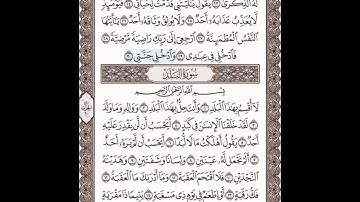 لَهُ الذِّكْرَىٰ ۝٢٣ يَقُولُ يَا لَيْتَنِي قَدَّمْتُ لِحَيَاتِي ۝٢٤ فَيَوْمَئِذٍ
لَا يُعَذِّبُ عَذَابَهُ أَحَدٌ ۝٢٥ وَلَا يُوثِقُ وَثَاقَهُ أَحَدٌ ۝٢٦ يَا أَيَّتُهَا
النَّفْسُ الْمُطْمَئِنَّةُ ۝٢٧ ارْجِعِي إِلَىٰ رَبِّكِ رَاضِيَةً مَرْضِيَّةً ۝٢٨
فَادْخُلِي فِي عِبَادِي ۝٢٩ وَادْخُلِي جَنَّتِي ۝٣٠
سُورَةُ الْبَلَدِ
بِسْمِ اللَّهِ الرَّحْمَٰنِ الرَّحِيمِ
لَا أُقْسِمُ بِهَٰذَا الْبَلَدِ ۝١ وَأَنْتَ حِلٌّ بِهَٰذَا الْبَلَدِ ۝٢ وَوَالِدٍ وَمَا وَلَدَ
۝٣ لَقَدْ خَلَقْنَا الْإِنْسَانَ فِي كَبَدٍ ۝٤ أَيَحْسَبُ أَنْ لَنْ يَقْدِرَ عَلَيْهِ
أَحَدٌ ۝٥ يَقُولُ أَهْلَكْتُ مَالًا لُبَدًا ۝٦ أَيَحْسَبُ أَنْ لَمْ يَرَهُ أَحَدٌ
۝٧ أَلَمْ نَجْعَلْ لَهُ عَيْنَيْنِ ۝٨ وَلِسَانًا وَشَفَتَيْنِ ۝٩ وَهَدَيْنَاهُ
النَّجْدَيْنِ ۝١٠ فَلَا اقْتَحَمَ الْعَقَبَةَ ۝١١ وَمَا أَدْرَاكَ مَا الْعَقَبَةُ ۝١٢
فَكُّ رَقَبَةٍ ۝١٣ أَوْ إِطْعَامٌ فِي يَوْمٍ ذِي مَسْغَبَةٍ ۝١٤ يَتِيمًا ذَا مَقْرَبَةٍ